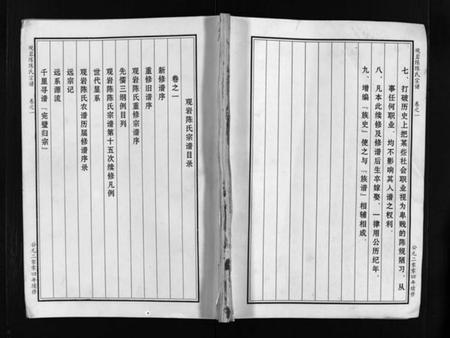 七、打破历史上把某些社会职业视为卑贱的陈规陋习，从
事任何职业，均不影响其入谱之权利。
八、凡本此续修及修谱后生卒嫁娶，一律用公历纪年。
九、增编「族史」使之与「族谱」相辅相成。
公元二零零四年续修
观岩陈氏宗谱 卷之一
观岩陈氏宗谱目录
卷之一
新修谱序
重修旧谱序
观岩陈氏重修宗谱序
先儒三纲例目列
观岩陈氏宗谱第十五次续修凡例
世代显系
观岩陈氏农谱历届修谱序录
远宗记
远系源流
千里寻谱「完璧归宗」
公元二零零四年续修